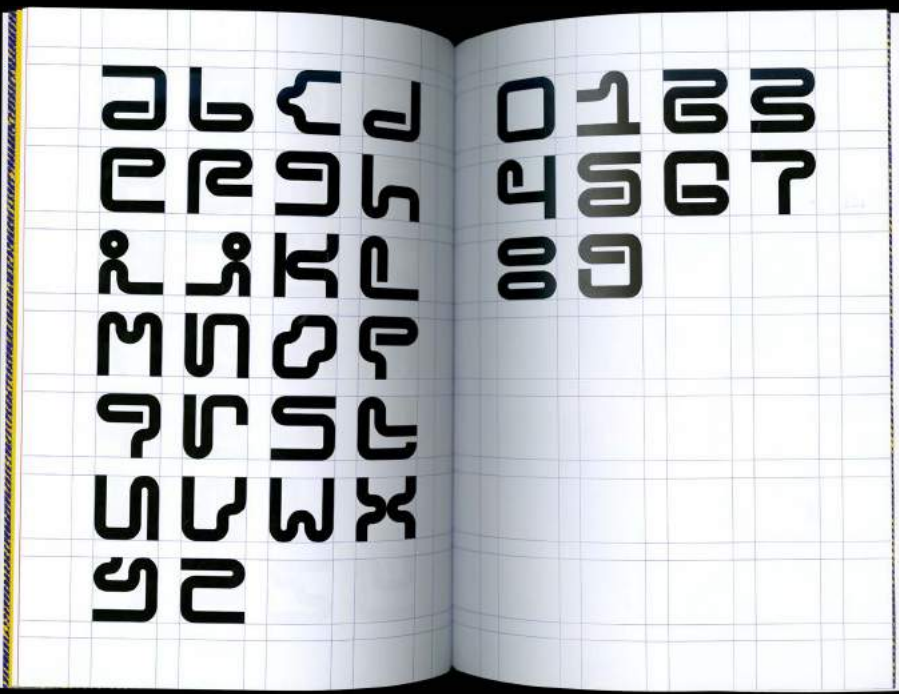 a b c d
e f g h
i j k l
m n o p
q r s t
u v w x
y z
0 1 2 3
4 5 6 7
8 9